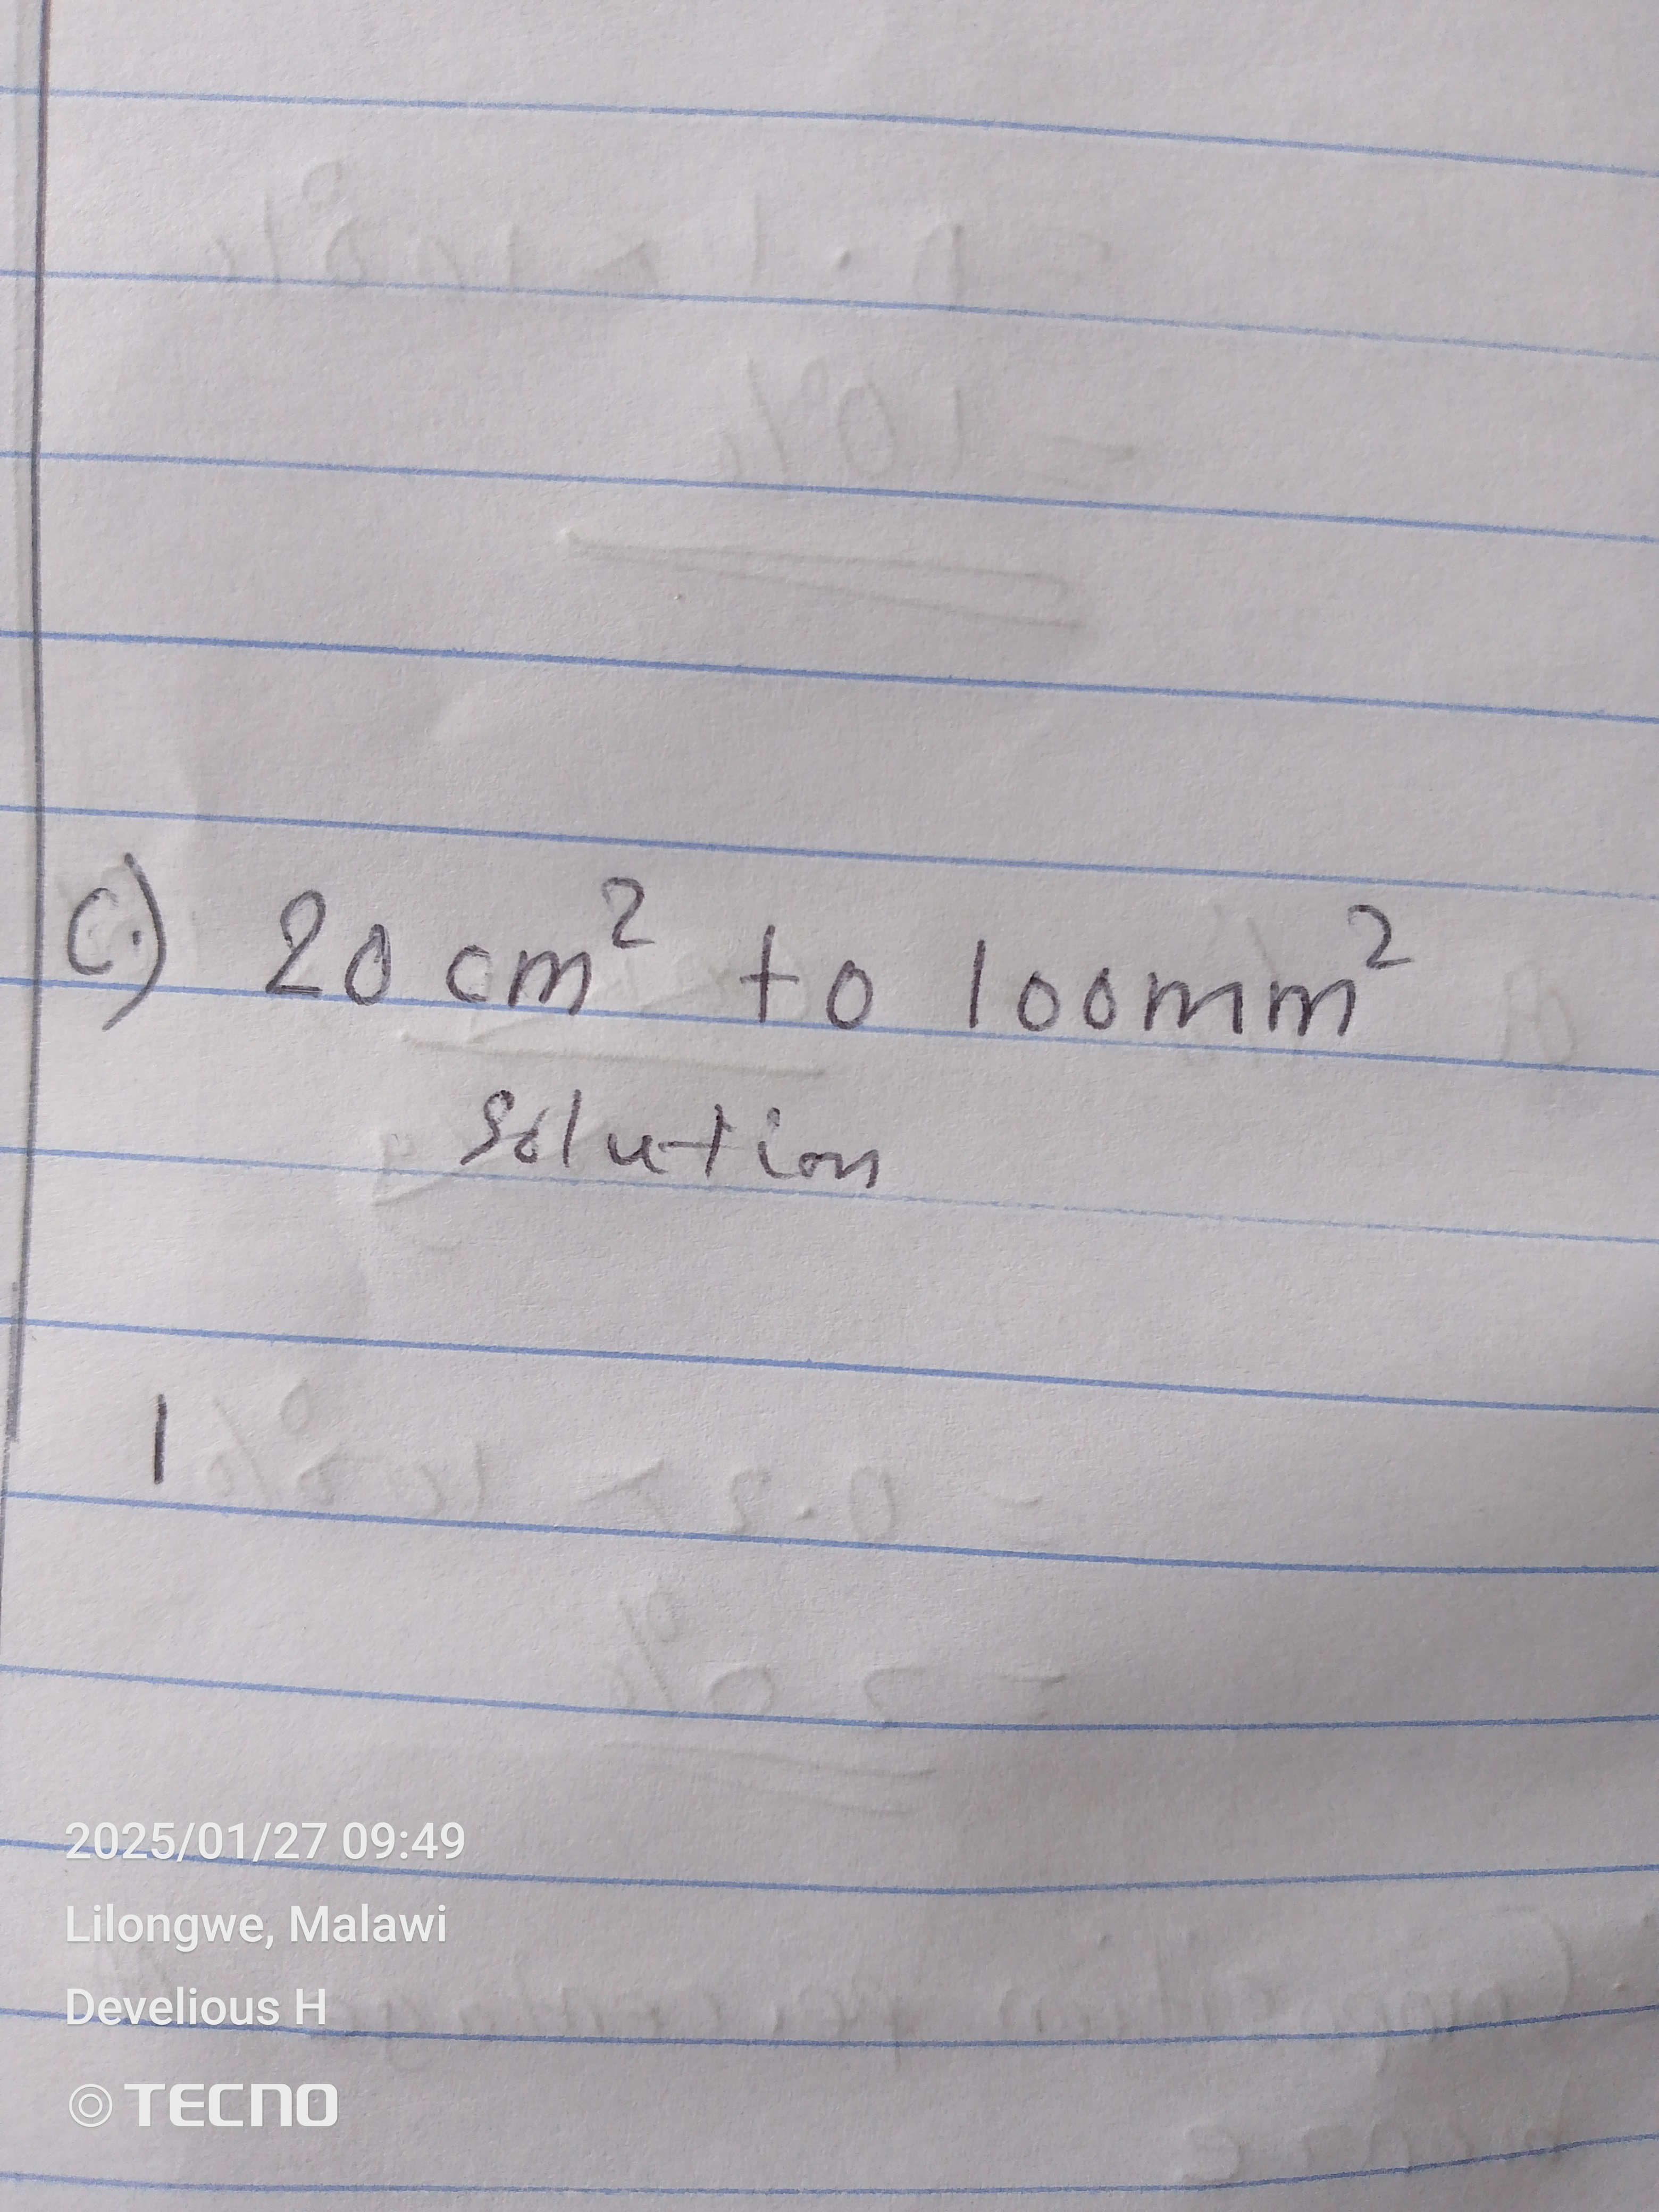 c.) 20 cm² to 100mm²
Solution
1
2025/01/27 09:49
Lilongwe, Malawi
Develious H
TECNO